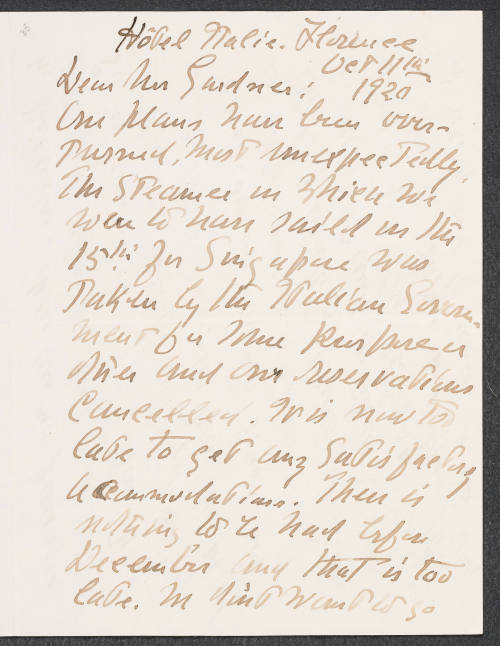 Hôtel Italie. Florence
Oct 11th
1920
Dear Mrs Gardner:
Our plans have been over-
turned, most unexpectedly.
The steamer in which we
were to have sailed on the
15th for Singapore was
taken by the Italian Govern-
ment for some purpose or
other and our reservations
cancelled. It is now too
late to get any satisfactory
accommodations. There is
nothing to be had before
December and that is too
late. We don't want to go